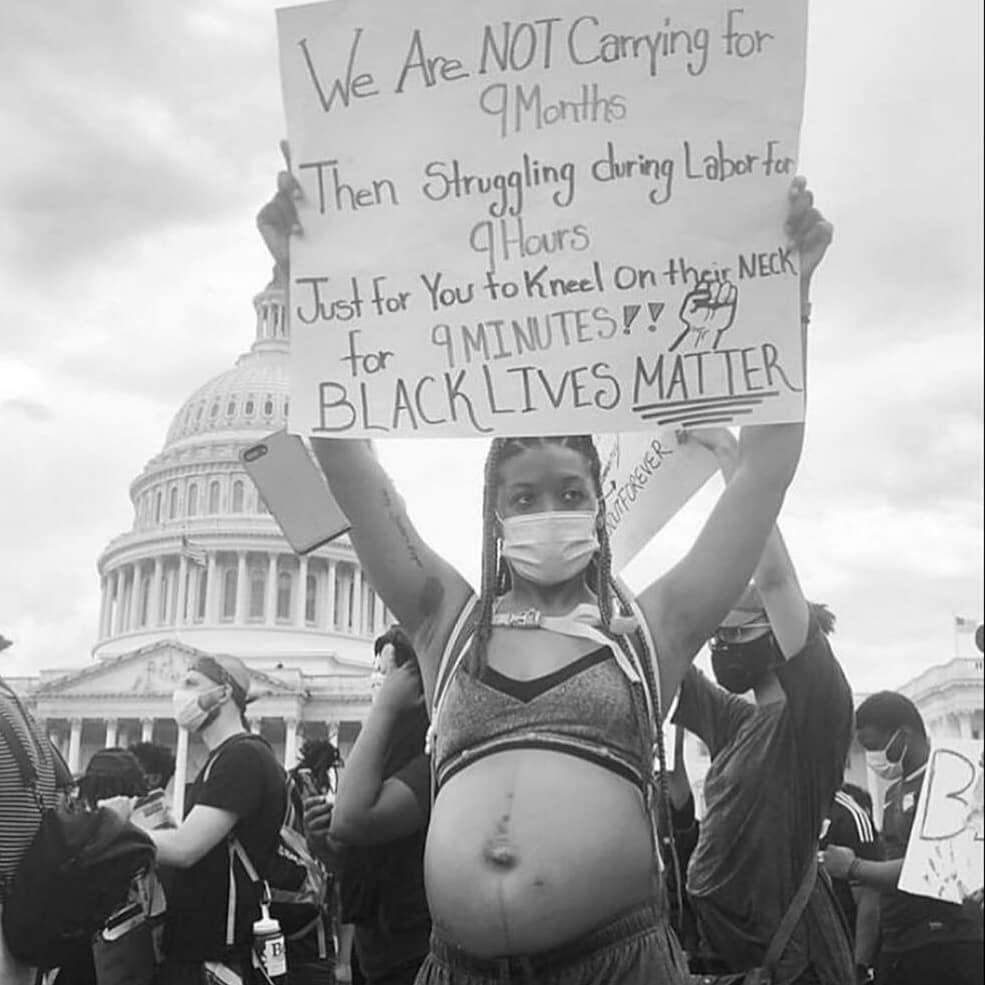 We Are NOT Carrying for
9 Months
Then Struggling during Labor for
9 Hours
Just for You to Kneel On their NECK
for 9 MINUTES!!
BLACK LIVES MATTER
FOREVER
B
B